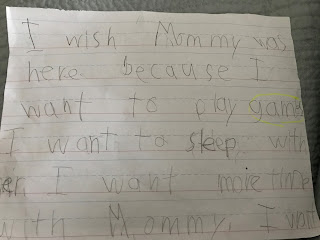 I wish Mommy was
here because I
want to play game
I want to sleep with
I want more time
with Mommy. I want